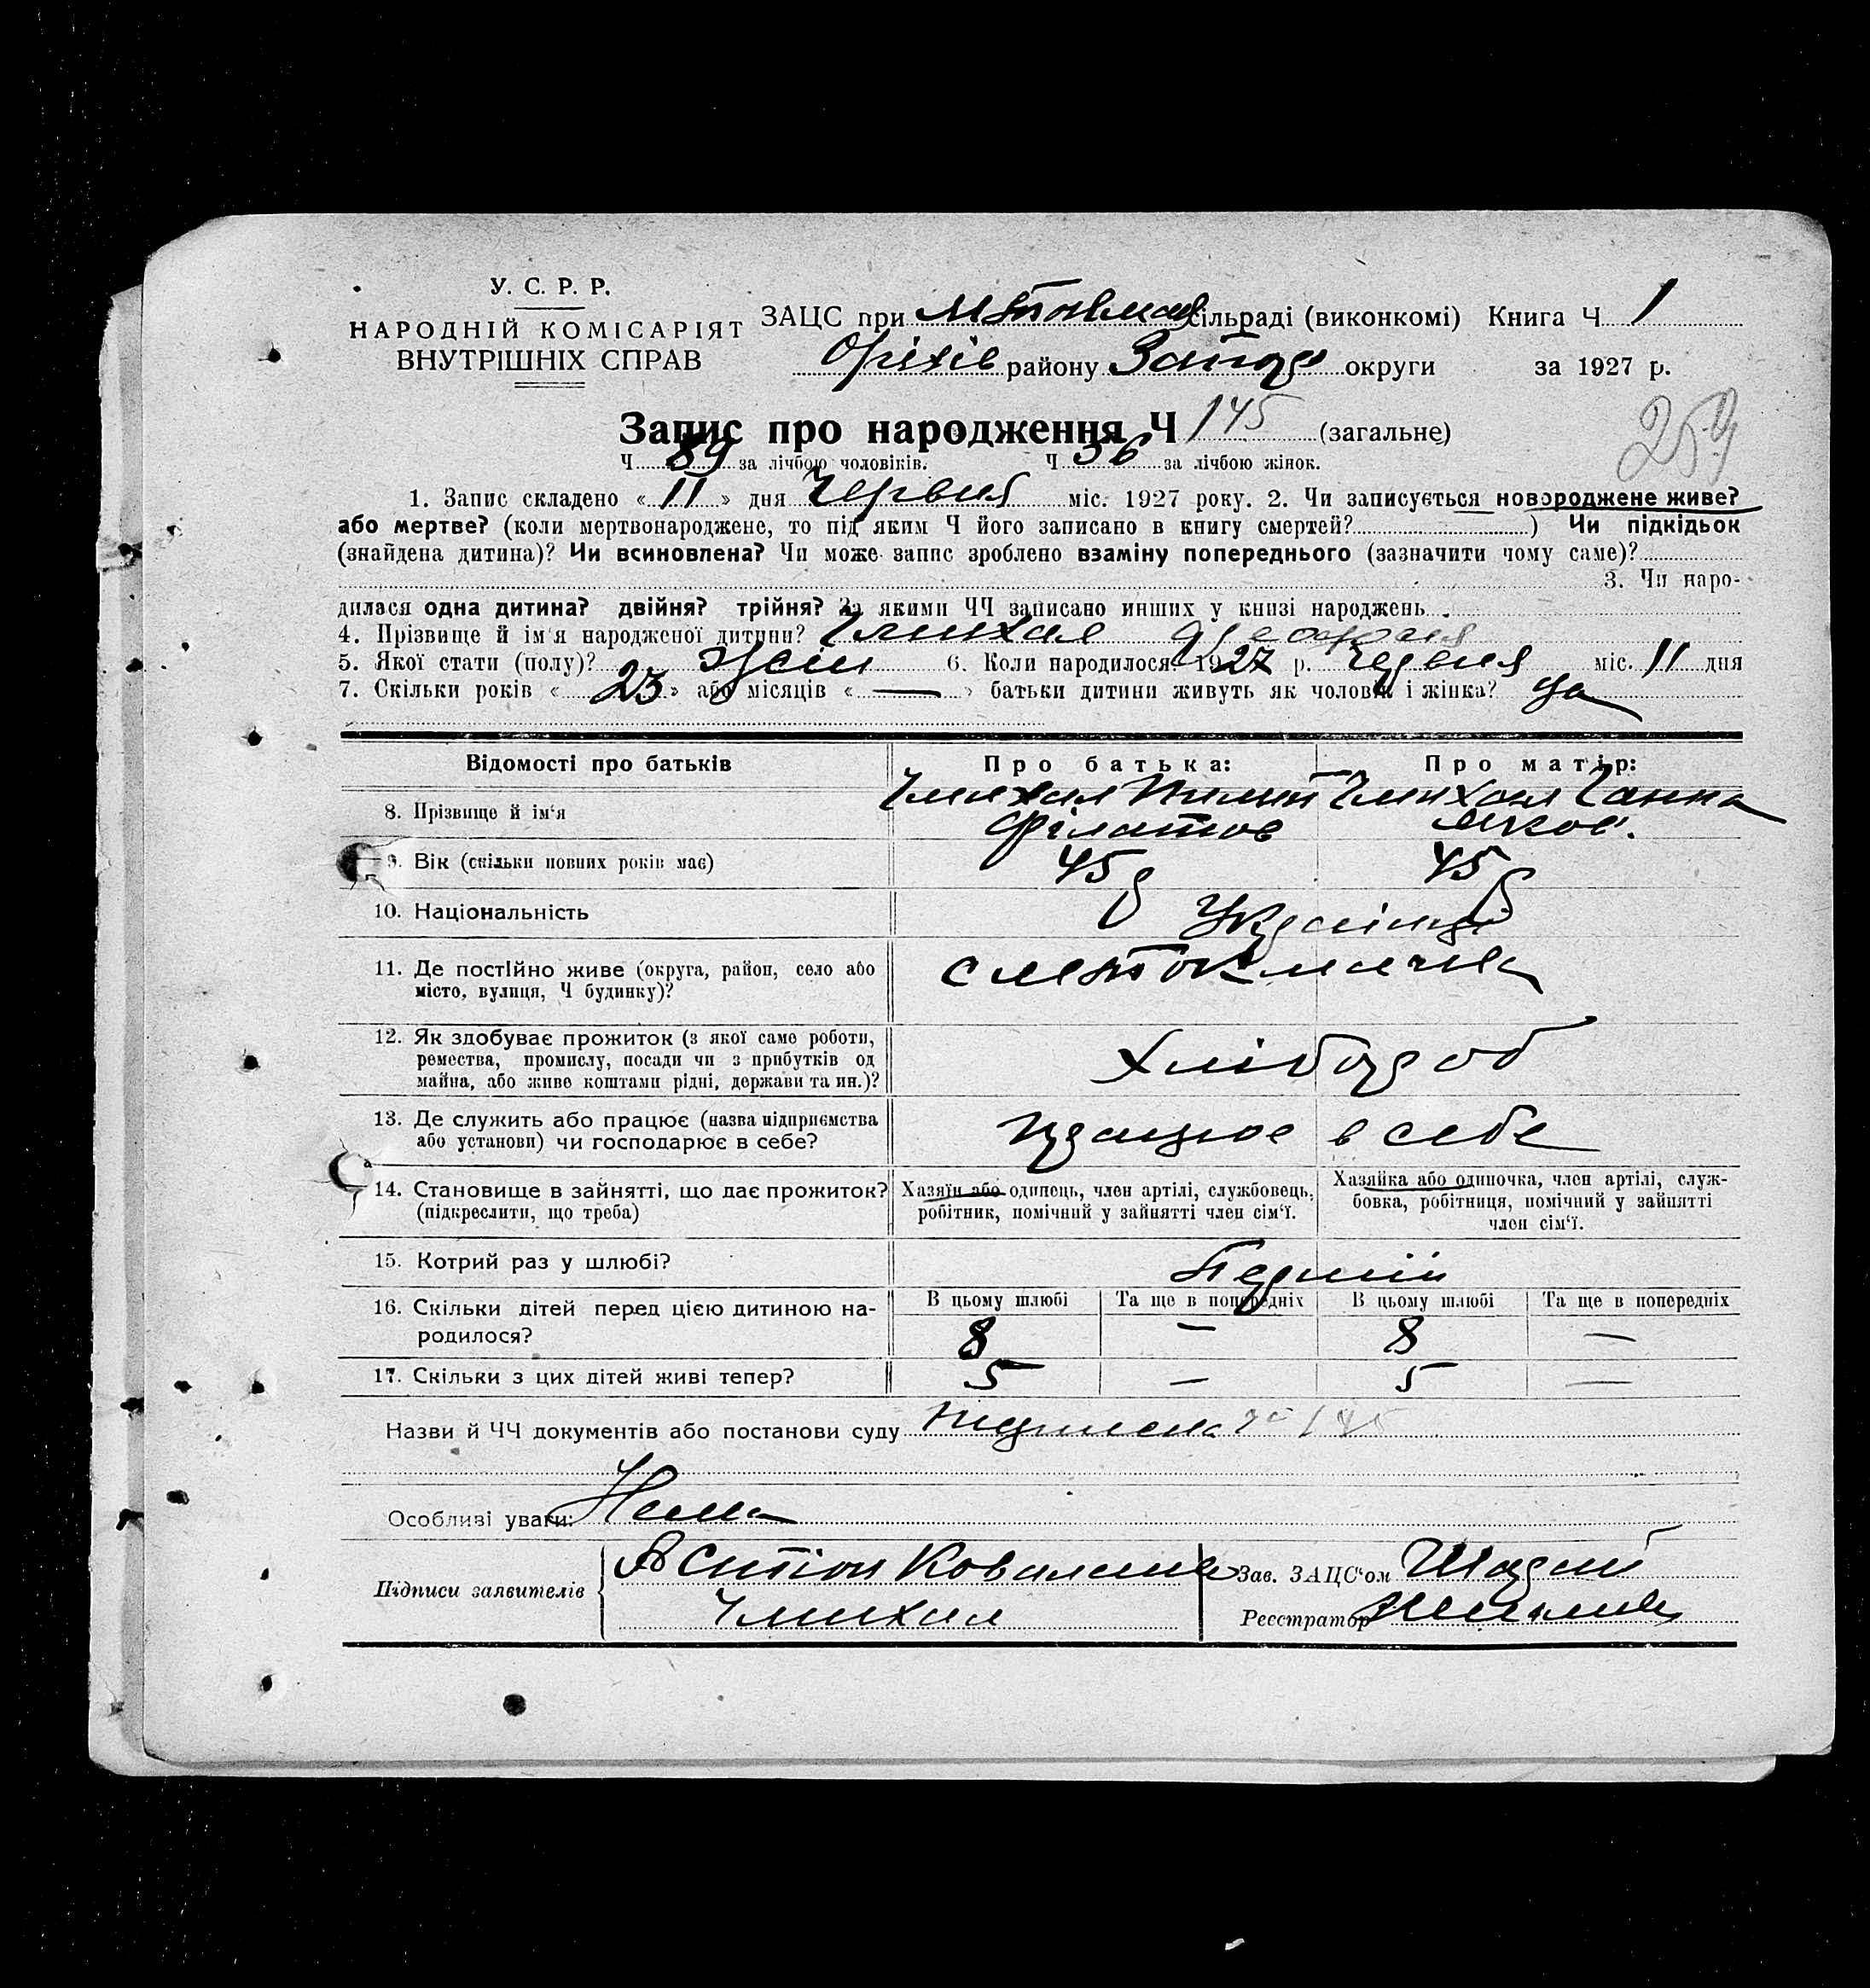 У. С. Р. Р.
НАРОДНІЙ КОМІСАРІЯТ
ВНУТРІШНІХ СПРАВ
ЗАЦС при сільраді (виконкомі) Книга Ч 1
Оріхів району Запор округи за 1927 р.
259
Запис про народження Ч 145 (загальне)
Ч 89 за лічбою чоловіків. Ч 56 за лічбою жінок.
1. Запис складено « 11 » дня Червня міс. 1927 року. 2. Чи записується новороджене живе?
або мертве? (коли мертвонароджене, то під яким Ч його записано в книгу смертей? ) Чи підкідьок
(знайдена дитина)? Чи всиновлена? Чи може запис зроблено взаміну попереднього (зазначити чому саме)?
3. Чи наро-
дилася одна дитина? двійня? трійня? За якими ЧЧ записано инших у книзі народжень
4. Прізвище й ім'я народженої дитини? Чмихал
5. Якої стати (полу)? Жін 6. Коли народилося 1927 р. Червня міс. 11 дня
7. Скільки років « 23 » або місяців « — » батьки дитини живуть як чоловік і жінка? да
Відомості про батьків
Про батька:
Про матір:
8. Прізвище й ім'я
Чмихал Пилип
Філатов
Чмихал Ганна
Яков.
9. Вік (скільки повних років має)
45 р
45 р
10. Національність
Україн
11. Де постійно живе (округа, район, село або
місто, вулиця, Ч будинку)?
12. Як здобуває прожиток (з якої саме роботи,
ремества, промислу, посади чи з прибутків од
майна, або живе коштами рідні, держави та ин.)?
Хлібороб
13. Де служить або працює (назва підприємства
або установи) чи господарює в себе?
працює в себе
14. Становище в зайнятті, що дає прожиток?
(підкреслити, що треба)
Хазяїн або одинець, член артілі, службовець,
робітник, помічний у зайнятті член сім'ї.
Хазяйка або одиночка, член артілі, служ-
бовка, робітниця, помічний у зайнятті
член сім'ї.
15. Котрий раз у шлюбі?
Перший
16. Скільки дітей перед цією дитиною на-
родилося?
В цьому шлюбі Та ще в попередніх В цьому шлюбі Та ще в попередніх
8 — 8 —
17. Скільки з цих дітей живі тепер?
5 — 5 —
Назви й ЧЧ документів або постанови суду
Особливі уваги: Нема
Підписи заявителів
Чмихал
Зав. ЗАЦС'ом
Реєстратор